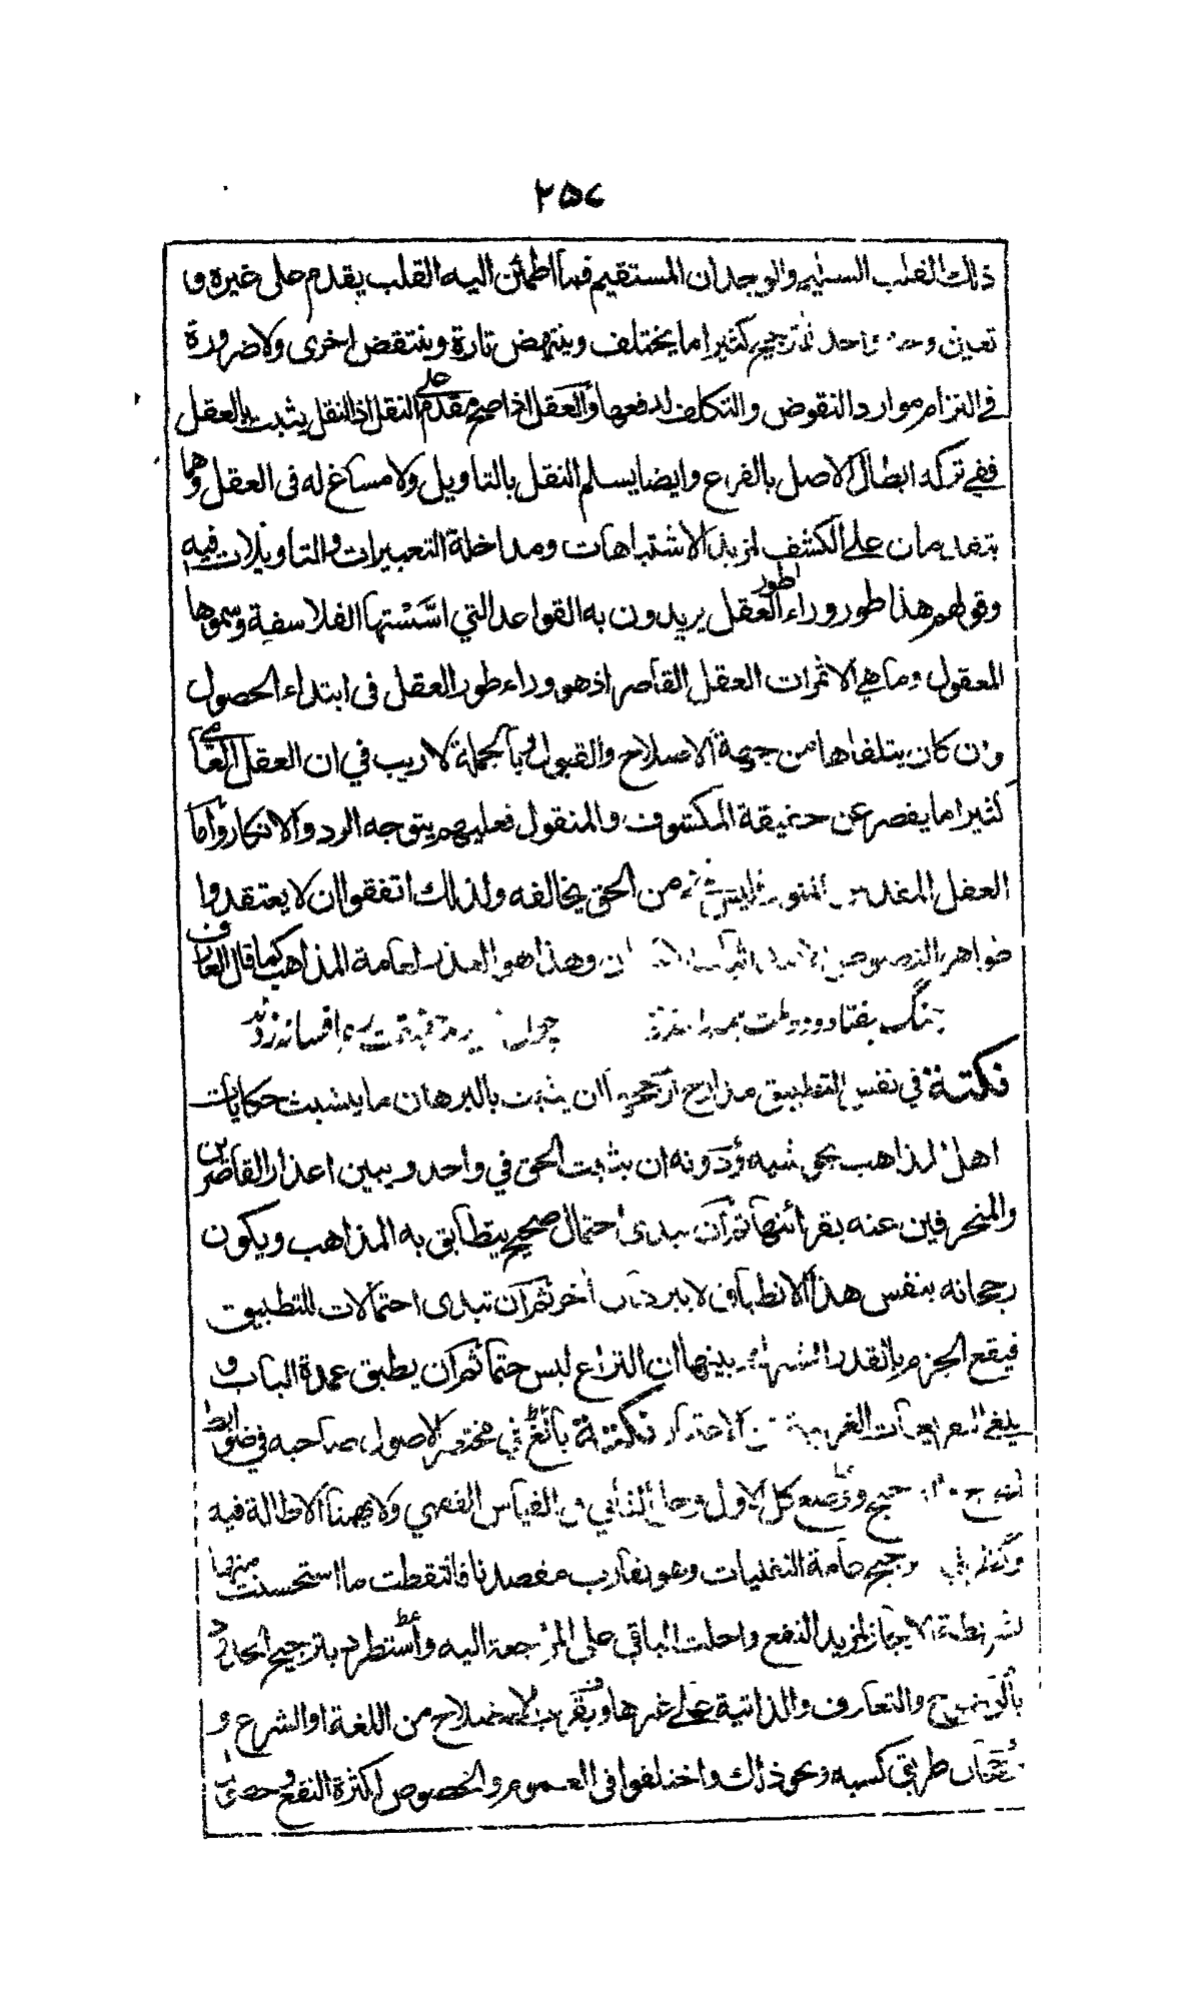 ٢٥٦
ذلك القلب السليم والوجدان المستقيم فما اطمأن اليه القلب يقدم على غيره و
تعيين وجه واحد للترجيح كثيرا ما يختلف وينتهض تارة وينتقض اخرى ولا ضرورة
في التزام موارد النقوض والتكلف لدفعها والعقل اذا صح مقدم على النقل اذ النقل يثبت بالعقل
ففي تركه ابطال الاصل بالفرع وايضا يسلم النقل بالتاويل ولا مساغ له في العقل وهما
يتقدمان على الكشف لمزيد الاشتباهات ومداخلة التعبيرات والتاويلات فيه
وقولهم هذا طور وراء طور العقل يريدون به القواعد التي اسَّسَتْها الفلاسفة وسموها
المعقول وما هي الا ثمرات العقل القاصر اذ هو وراء طور العقل في ابتداء الحصول
وان كان يتلقاها من جهة الاصلاح والقبول وبالجملة لا ريب في ان العقل العامي
كثيرا ما يقصر عن حقيقة المكشوف والمنقول فعليهم يتوجه الرد والانكار واما
العقل المقدس المنور فليس شيء من الحق يخالفه ولذلك اتفقوا ان لا يعتقدوا
ظواهر النصوص وهذا هو العذر لعامة المذاهب كما قال العارف
جنگ هفتاد ودو ملت همه را عذر چون حقيقت ره افسانه زدند
نكتة في نفس التطبيق مدارج ارجحها ان يثبت بالبرهان ما يشبث حكايات
اهل المذاهب بحواشيه ودونه ان يثبت الحق في واحد ويبين اعذار القاصرين
والمنحرفين عنه بقرائنها ثم ان يبدى احتمال صحيح يتطابق به المذاهب ويكون
رجحانه بنفس هذا الانطباق لا ببرهان اخر ثم ان تبدى احتمالات للتطبيق
فيقع الجزم بالقدر المشترك بينها ان النزاع ليس حتما ثم ان يطبق عمدة الباب و
يلغي التعريفات الغريبة عن الاعتبار نكتة بالغ في مختصر الاصول صاحبه في ضوابط
الترجيح وكل الاول وحال الثاني في القياس الفقهي ولا يهمنا الاطالة فيه
ترجيح عامة النقليات وهو يقارب مقصدنا فالتقطت ما استحسنت منها
بشريطة الايجاز لمزيد النفع واحلت الباقي على المراجعة اليه واستطرد بترجيح الحدود
بالتوضيح والتعارف والذاتية على غيرها وبقرب الاصطلاح من اللغة او الشرع و
طريق كسبه ونحو ذلك واختلفوا في العموم والخصوص لكثرة النفع و